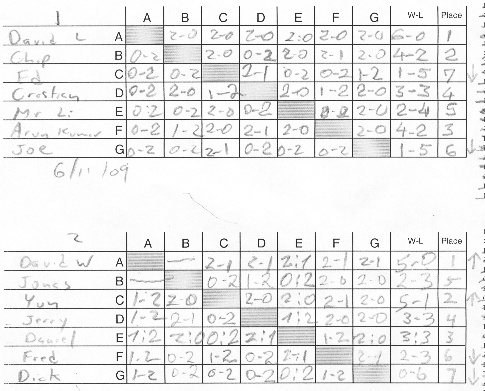 1 A B C D E F G W-L Place
David L A 2-0 2-0 2-0 2:0 2-0 2-0 6-0 1
Chip B 0-2 2-0 0-2 2-0 2-1 2-0 4-2 2
Ed C 0-2 0-2 2-1 0-2 0-2 1-2 1-5 7 ↓
Cristian D 0-2 2-0 1-2 2-0 1-2 2-0 3-3 4
Mr Li E 0:2 0-2 2-0 0-2 0-2 2-0 2-4 5
Arun Kumar F 0-2 1-2 2-0 2-1 2-0 2-0 4-2 3
Joe G 0-2 0-2 2-1 0-2 0-2 0-2 1-5 6 ↓
6/11/09
2 A B C D E F G W-L Place
David W A — 2-1 2-1 2:1 2-1 2-1 5-0 1 ↑
Jones B — 0-2 1-2 0:2 2-0 2-0 2-3 5
Yun C 1-2 2-0 2-0 2:0 2-1 2-0 5-1 2 ↑
Jerry D 1-2 2-1 0-2 1:2 2-0 2-0 3-3 4
Daniel E 1:2 2:0 0:2 2:1 1-2 2:0 3:3 3
Fred F 1-2 0-2 1-2 0-2 2-1 2-1 2-3 6 ↓
Dick G 1-2 0-2 0-2 0-2 0:2 1-2 0-6 7 ↓